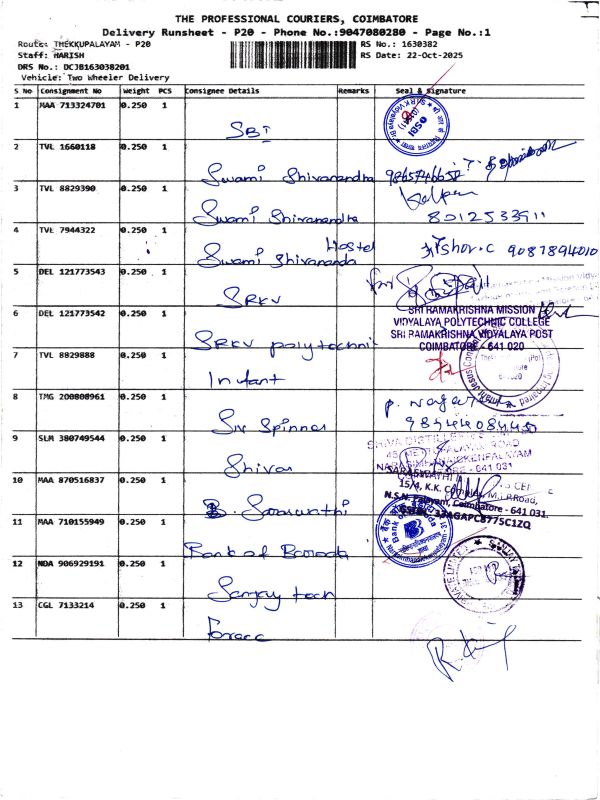 THE PROFESSIONAL COURIERS, COIMBATORE
Delivery Runsheet - P20 - Phone No.:9047080280 - Page No.:1
Route: THEKKUPALAYAM - P20
RS No.: 1630382
Staff: HARISH
RS Date: 22-Oct-2025
DRS No.: DCJB163038201
Vehicle: Two Wheeler Delivery
S No Consignment No Weight PCS Consignee Details Remarks Seal & Signature
1 MAA 713324701 0.250 1 SBI
2 TVL 1660118 0.250 1 Swami Shivanandha 9865746652
3 TVL 8829390 0.250 1 Swami Shivanandha Kalpan 8012533911
4 TVL 7944322 0.250 1 Swami Shivananda Hostel Kishor.C 9087894010
5 DEL 121773543 0.250 1 SRKV
6 DEL 121773542 0.250 1 SRKV polytechnic
SRI RAMAKRISHNA MISSION
VIDYALAYA POLYTECHNIC COLLEGE
SRI RAMAKRISHNA VIDYALAYA POST
COIMBATORE - 641 020
7 TVL 8829888 0.250 1 Infant
8 TMG 200808961 0.250 1 Sri Spinner
9 SLM 380749544 0.250 1 Shiva
SHIVA DISTILLERIES
NARASIMHANAICKENPALAYAM
COIMBATORE - 641 031
10 MAA 870516837 0.250 1 B. Saraswathi
SARASWATHI
15/4, K.K. Complex, M.T.P.Road,
N.S.N. Palayam, Coimbatore - 641 031.
11 MAA 710155949 0.250 1 Bank of Baroda
Bank of Baroda
12 NDA 906929191 0.250 1 Sanjay tech
13 CGL 7133214 0.250 1 Forace